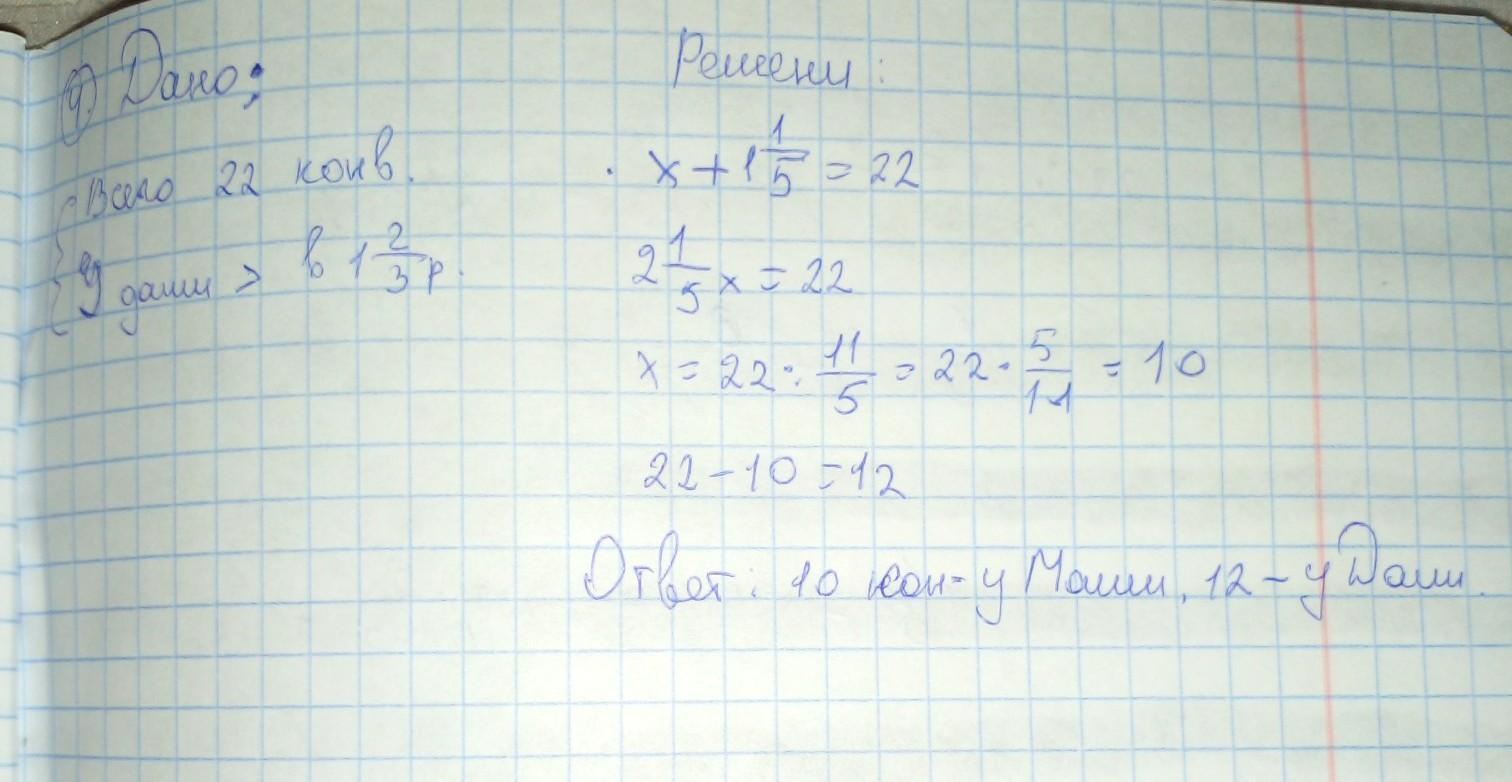 9) Дано:
Всего 22 конв.
У даши > в 1 2/3 р.
Решени :
x + 1 1/5 = 22
2 1/5 x = 22
x = 22 : 11/5 = 22 · 5/11 = 10
22 - 10 = 12
Ответ: 10 кон - у Маши, 12 - у Даши.